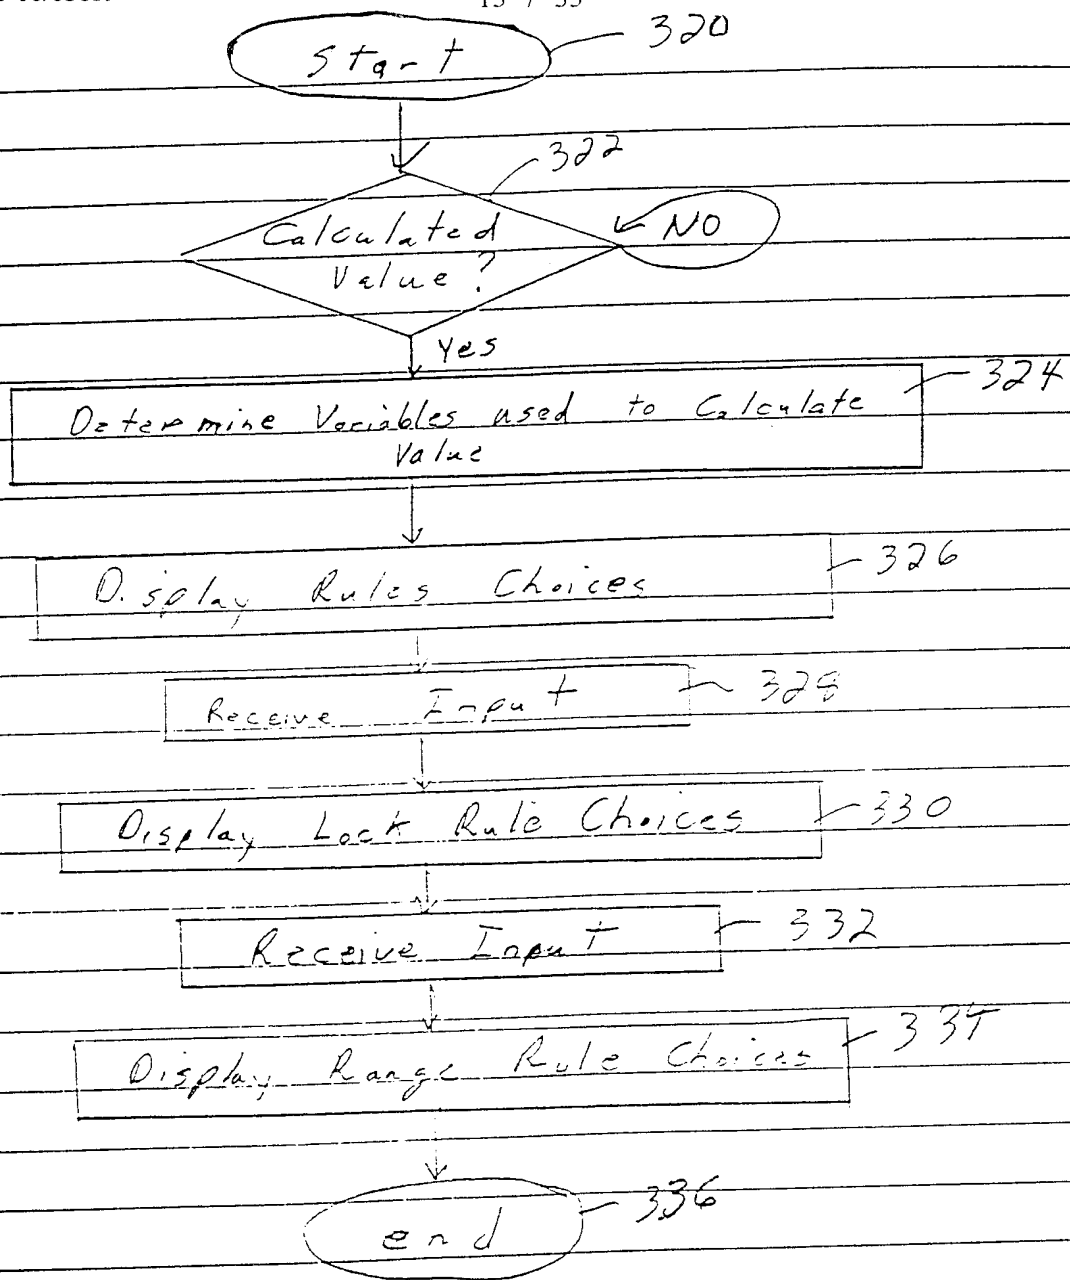 13 / 33
Start
320
322
Calculated
Value?
NO
Yes
324
Determine Variables used to Calculate
Value
Display Rules Choices
326
Receive Input
328
Display Lock Rule Choices
330
Receive Input
332
Display Range Rule Choices
334
end
336